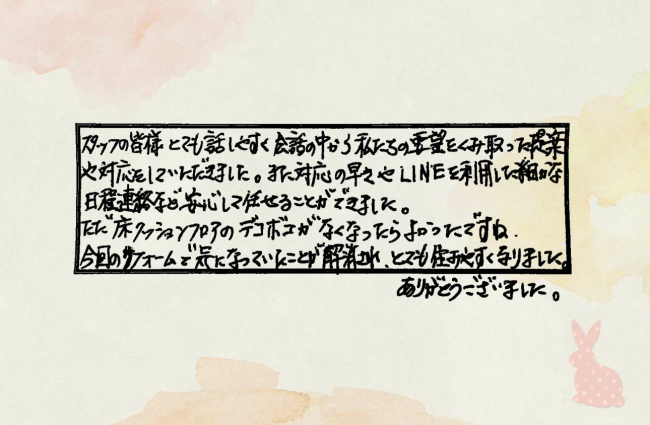 スタッフの皆様とても話しやすく会話の中から私たちの要望をくみ取った提案
や対応をしていただきました。また対応の早さやLINEを利用した細かな
日程連絡など安心して任せることができました。
ただ床クッションフロアのデコボコがなくなったらよかったですね.
今回のリフォームで気になっていたことが解消され、とても住みやすくなりました。
ありがとうございました。